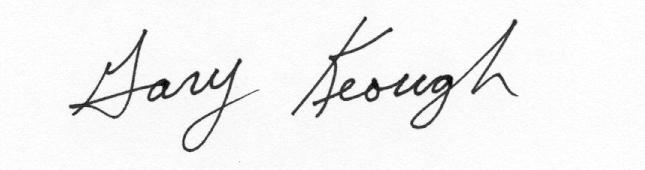 Gary Keough